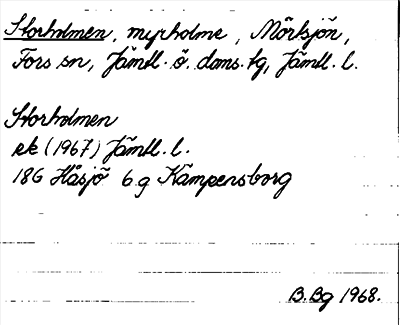 Storholmen, myrholme, Mörtsjön,
Fors sn, Jämtl. ö. doms. tg, Jämtl. l.
Storholmen
ek (1967) Jämtl. l.
18G Håsjö 6g Kämpensborg
B.Bg 1968.